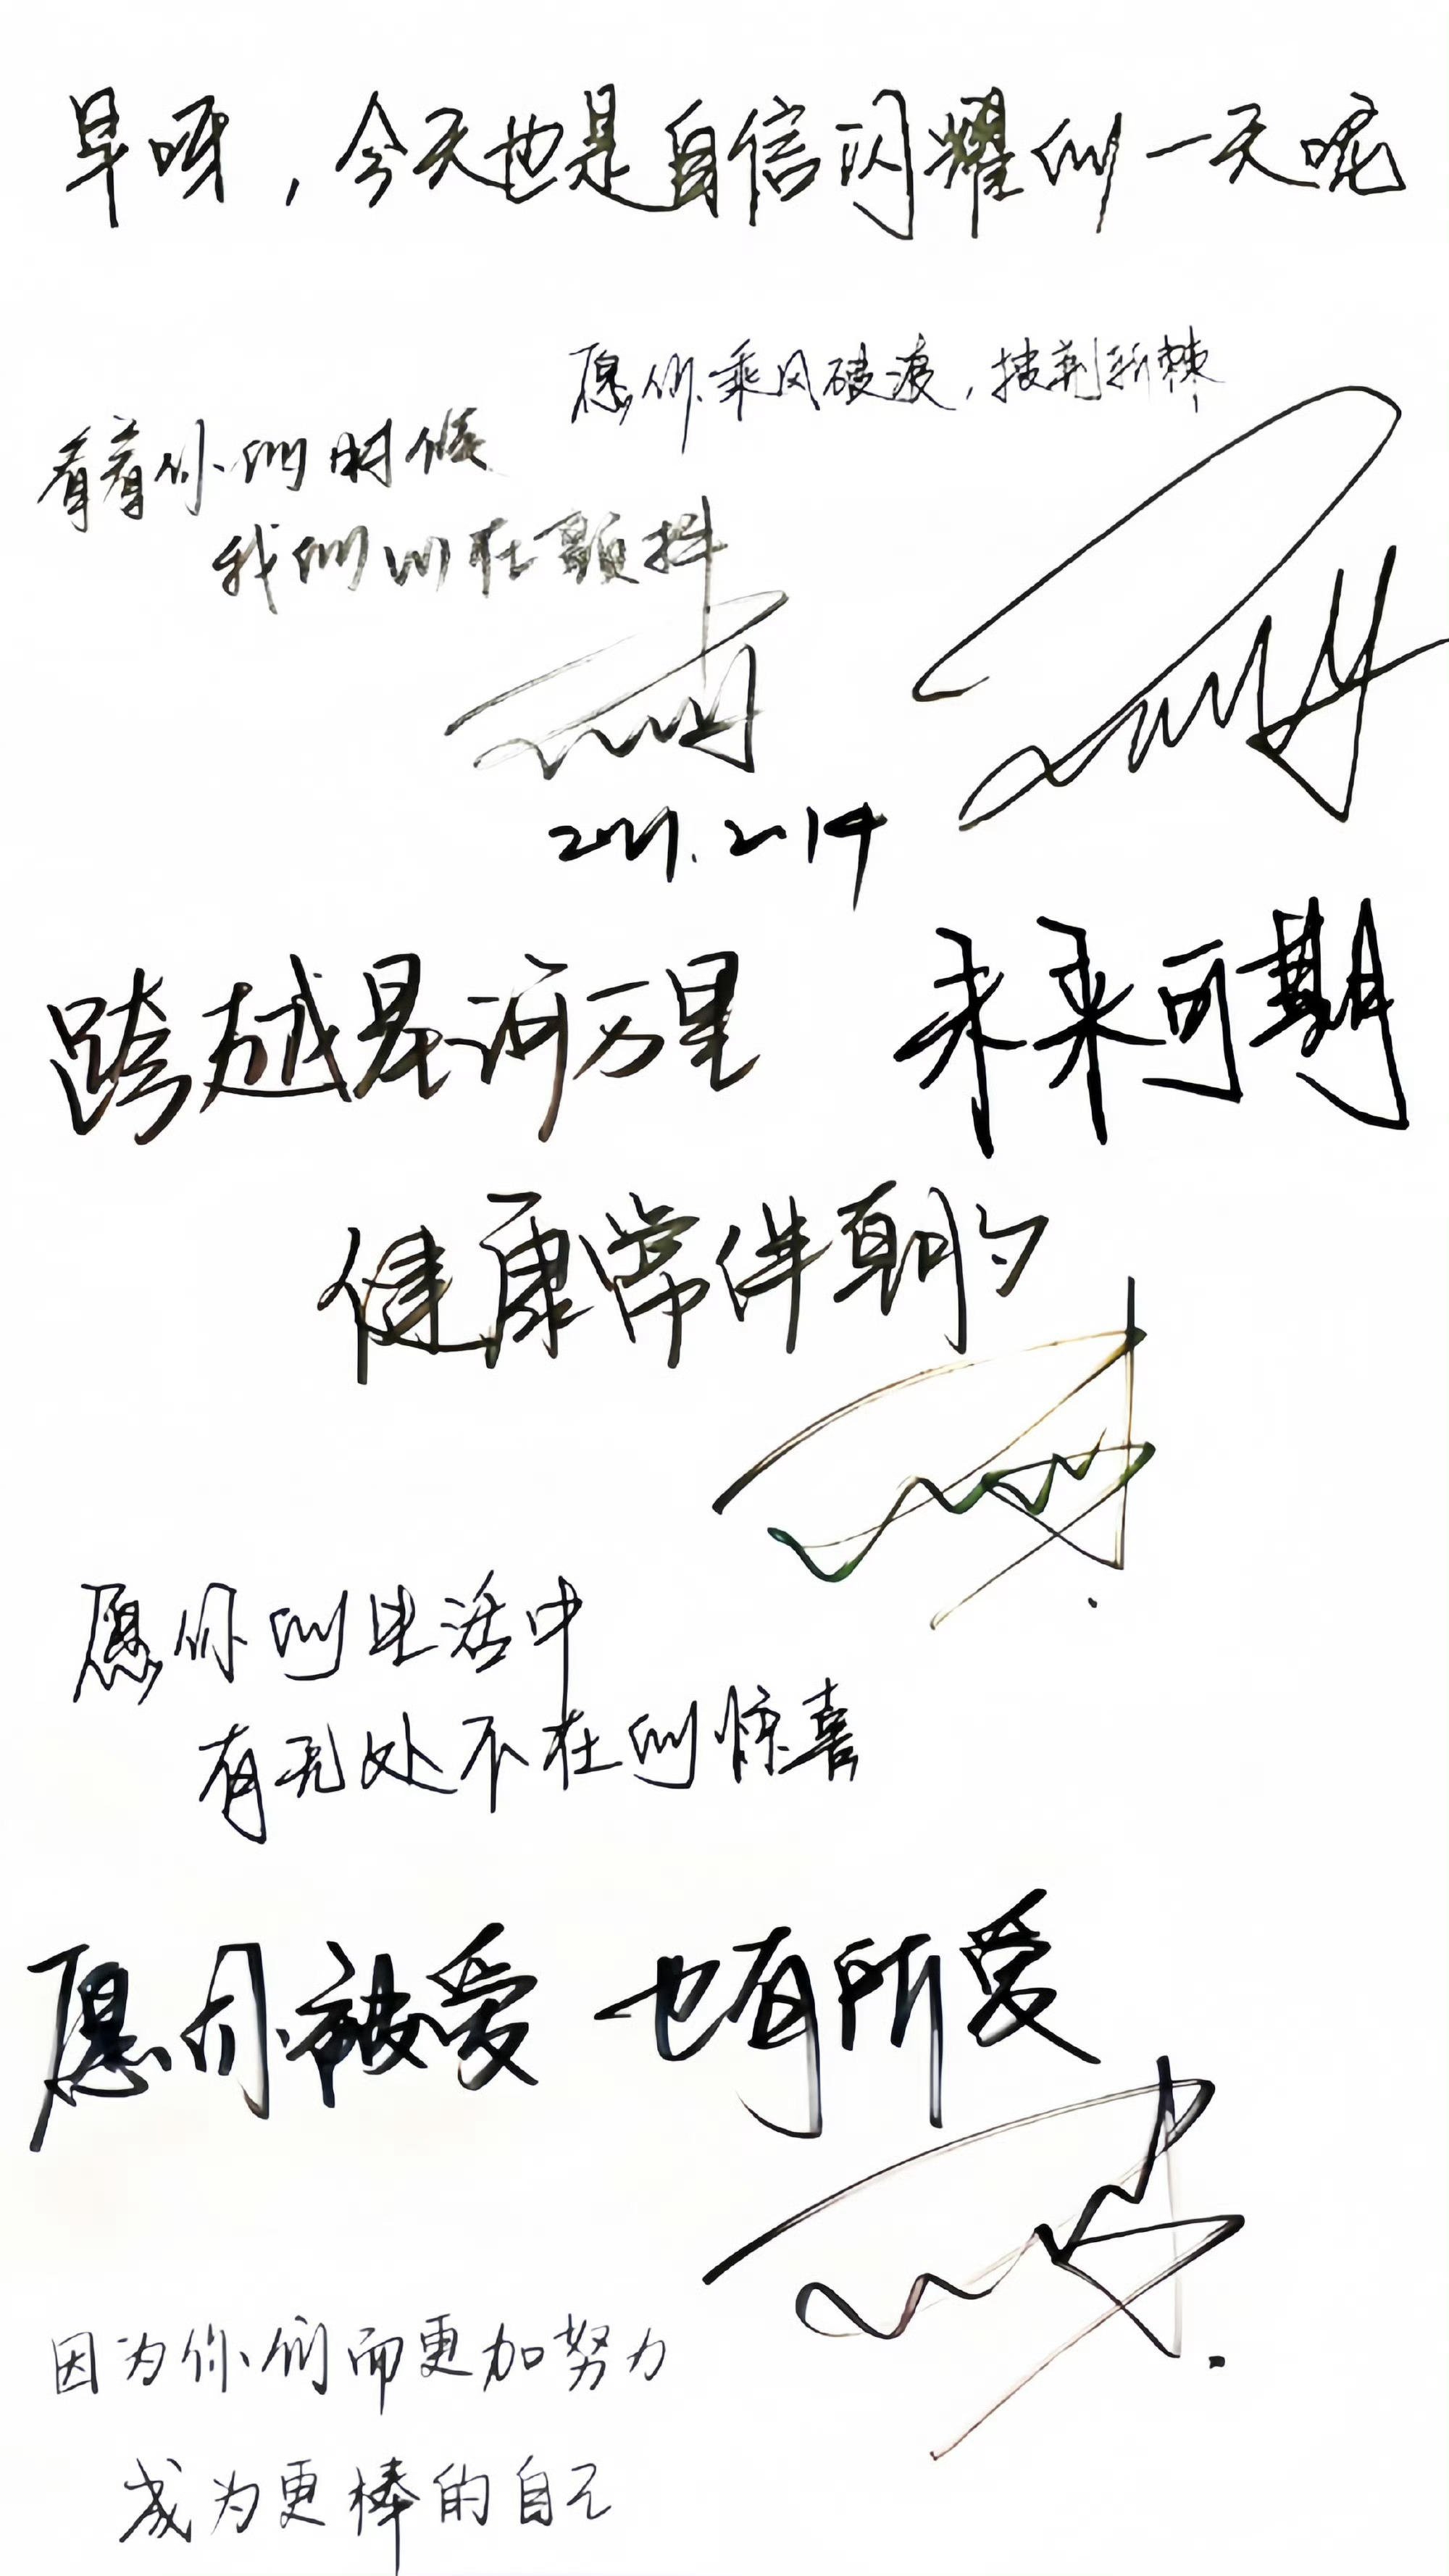 早呀，今天也是自信闪耀的一天呢
愿你乘风破浪，披荆斩棘
看着你的时候
我的心在颤抖
2021.2.14
跨越星河万里 未来可期
健康常伴
愿你的生活中
有无处不在的惊喜
愿你被爱 也有所爱
因为你们而更加努力
成为更棒的自己